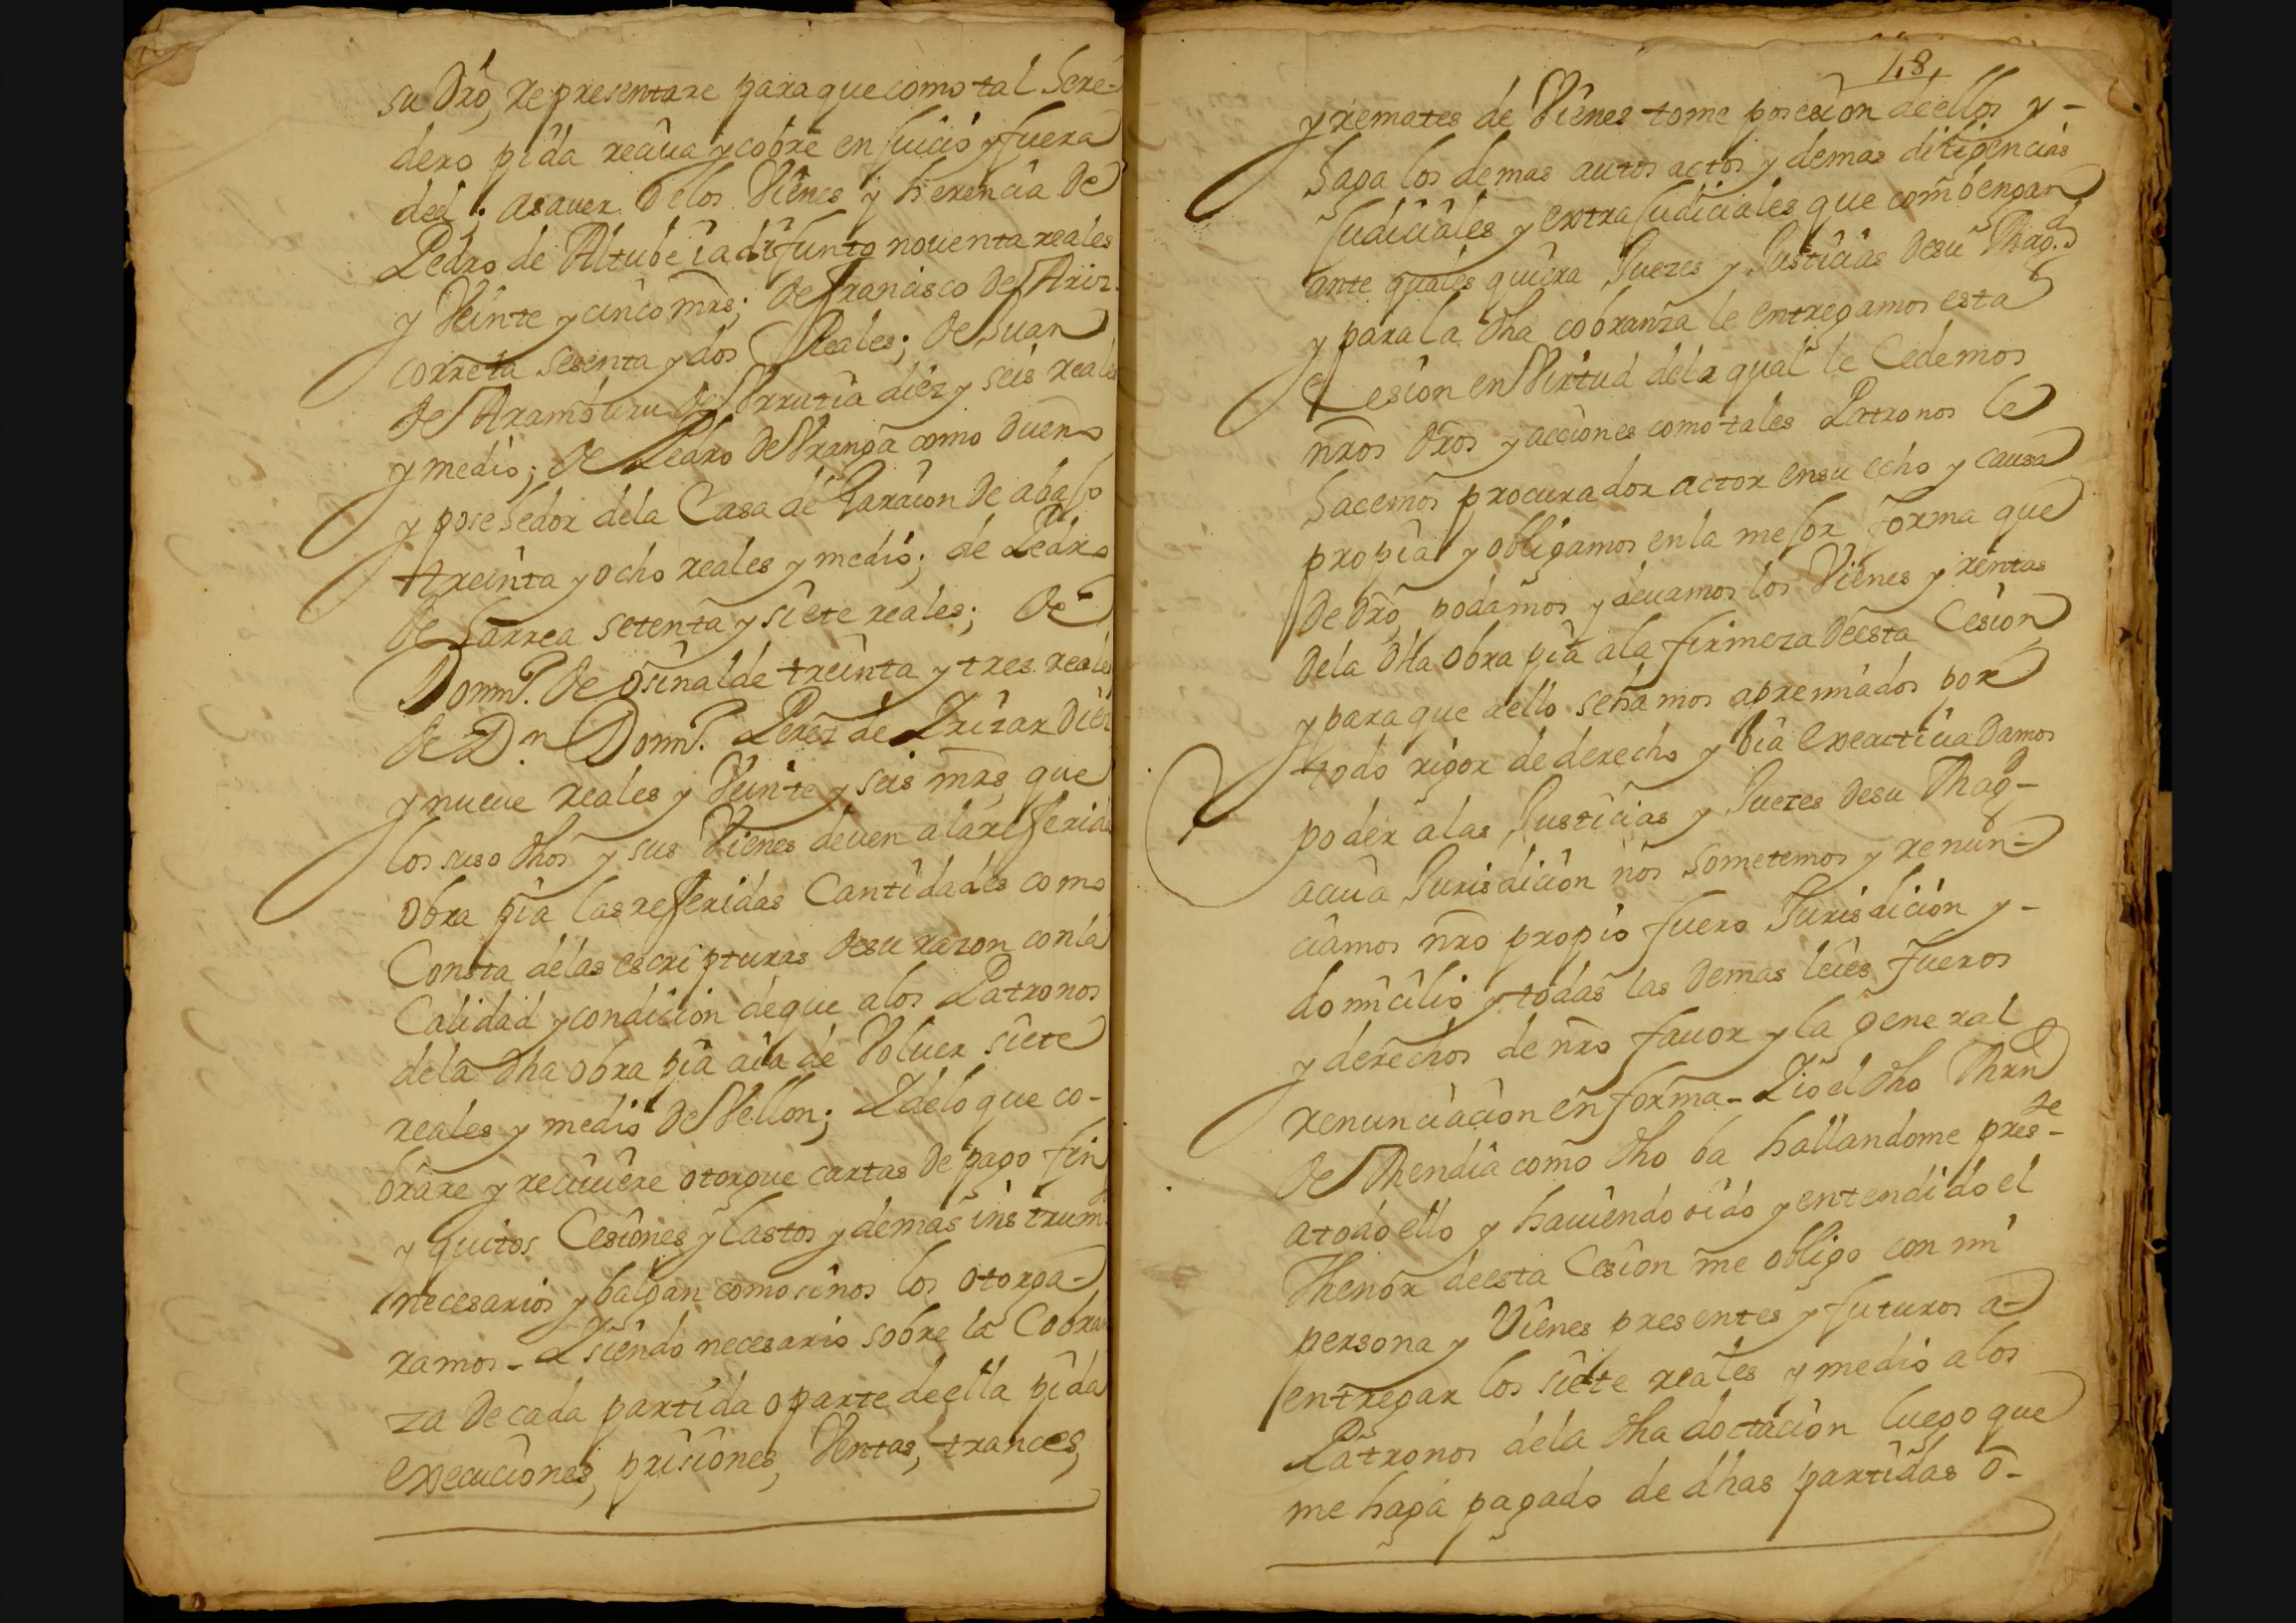 su dro, representare para que como tal here-
dero pida reciua y cobre en Juicio y fuera
del; asauer de los Vienes y herencia de
Pedro de Altube ia difunto nouenta reales
y Veinte y cinco mrs; de Francisco de Ariz
correta sesenta y dos Reales; de Juan
de Aramburu de Vrrutia diez y seis reales
y medio; de Pedro de Vranga como dueño
y posehedor dela Casa de Garaicon de abajo
treinta y ocho reales y medio; de Pedro
de Larrea setenta y siete reales; de
Domin.º de Osinalde treinta y tres reales
de Dn. Domin.º Perez de Yrizar diez
y nueue reales y Veinte y seis mrs que
los suso dhos y sus Vienes deuen ala referida
obra pia las referidas Cantidades como
Consta delas escripturas desu razon con la
Calidad y condicion de que alos Patronos
dela dha obra pia aia de Voluer siete
reales y medio de Vellon; Y delo que co-
brare y reciuiere otorgue cartas de pago fin
y quitos Cesiones y lastos y demas instrum.
necesarios y balgan como si nos los otorga-
ramos - Y siendo necesario sobre la Cobran
za de cada partida o parte de ella pida
execuciones, prisiones, Ventas, trances,
18,
y remates de Vienes tome posesion de ellos y -
haga los demas autos actos y demas diligencias
Judiciales y extra Judiciales que combengan
ante quales quiera Juezes y Justicias desu Mag.d
y para la dha cobranza le entregamos esta
Cesion en Virtud dela qual le Cedemos
nros dros y acciones como tales Patronos le
hacemos procurador actor ensu echo y causa
propia y obligamos en la mejor forma que
de dro, podamos y deuamos los Vienes y rentas
dela dha obra pia ala firmeza de esta Cesion
y para que a ello seamos apremiados por
todo rigor de derecho y bia executiua Damos
poder alas Justicias y Juezes desu Mag-
acuia Jurisdicion nos sometemos y renun-
ciamos nro propio fuero Jurisdicion y -
domicilio y todas las demas leies fueros
y derechos de nro fauor y la general
renunciacion en forma - Y io el dho Mrn
de Mendia como dho ba hallandome pres-te
atodo ello y hauiendo oido y entendido el
Thenor de esta Cesion me obligo con mi
persona y Vienes presentes y futuros a-
entregar los siete reales y medio alos
Patronos dela dha doctacion luego que
me haga pagado de dhas partidas o-